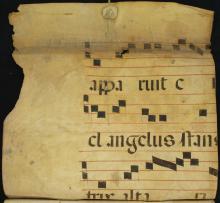 appa ruit c
el angelus stans
trix alta